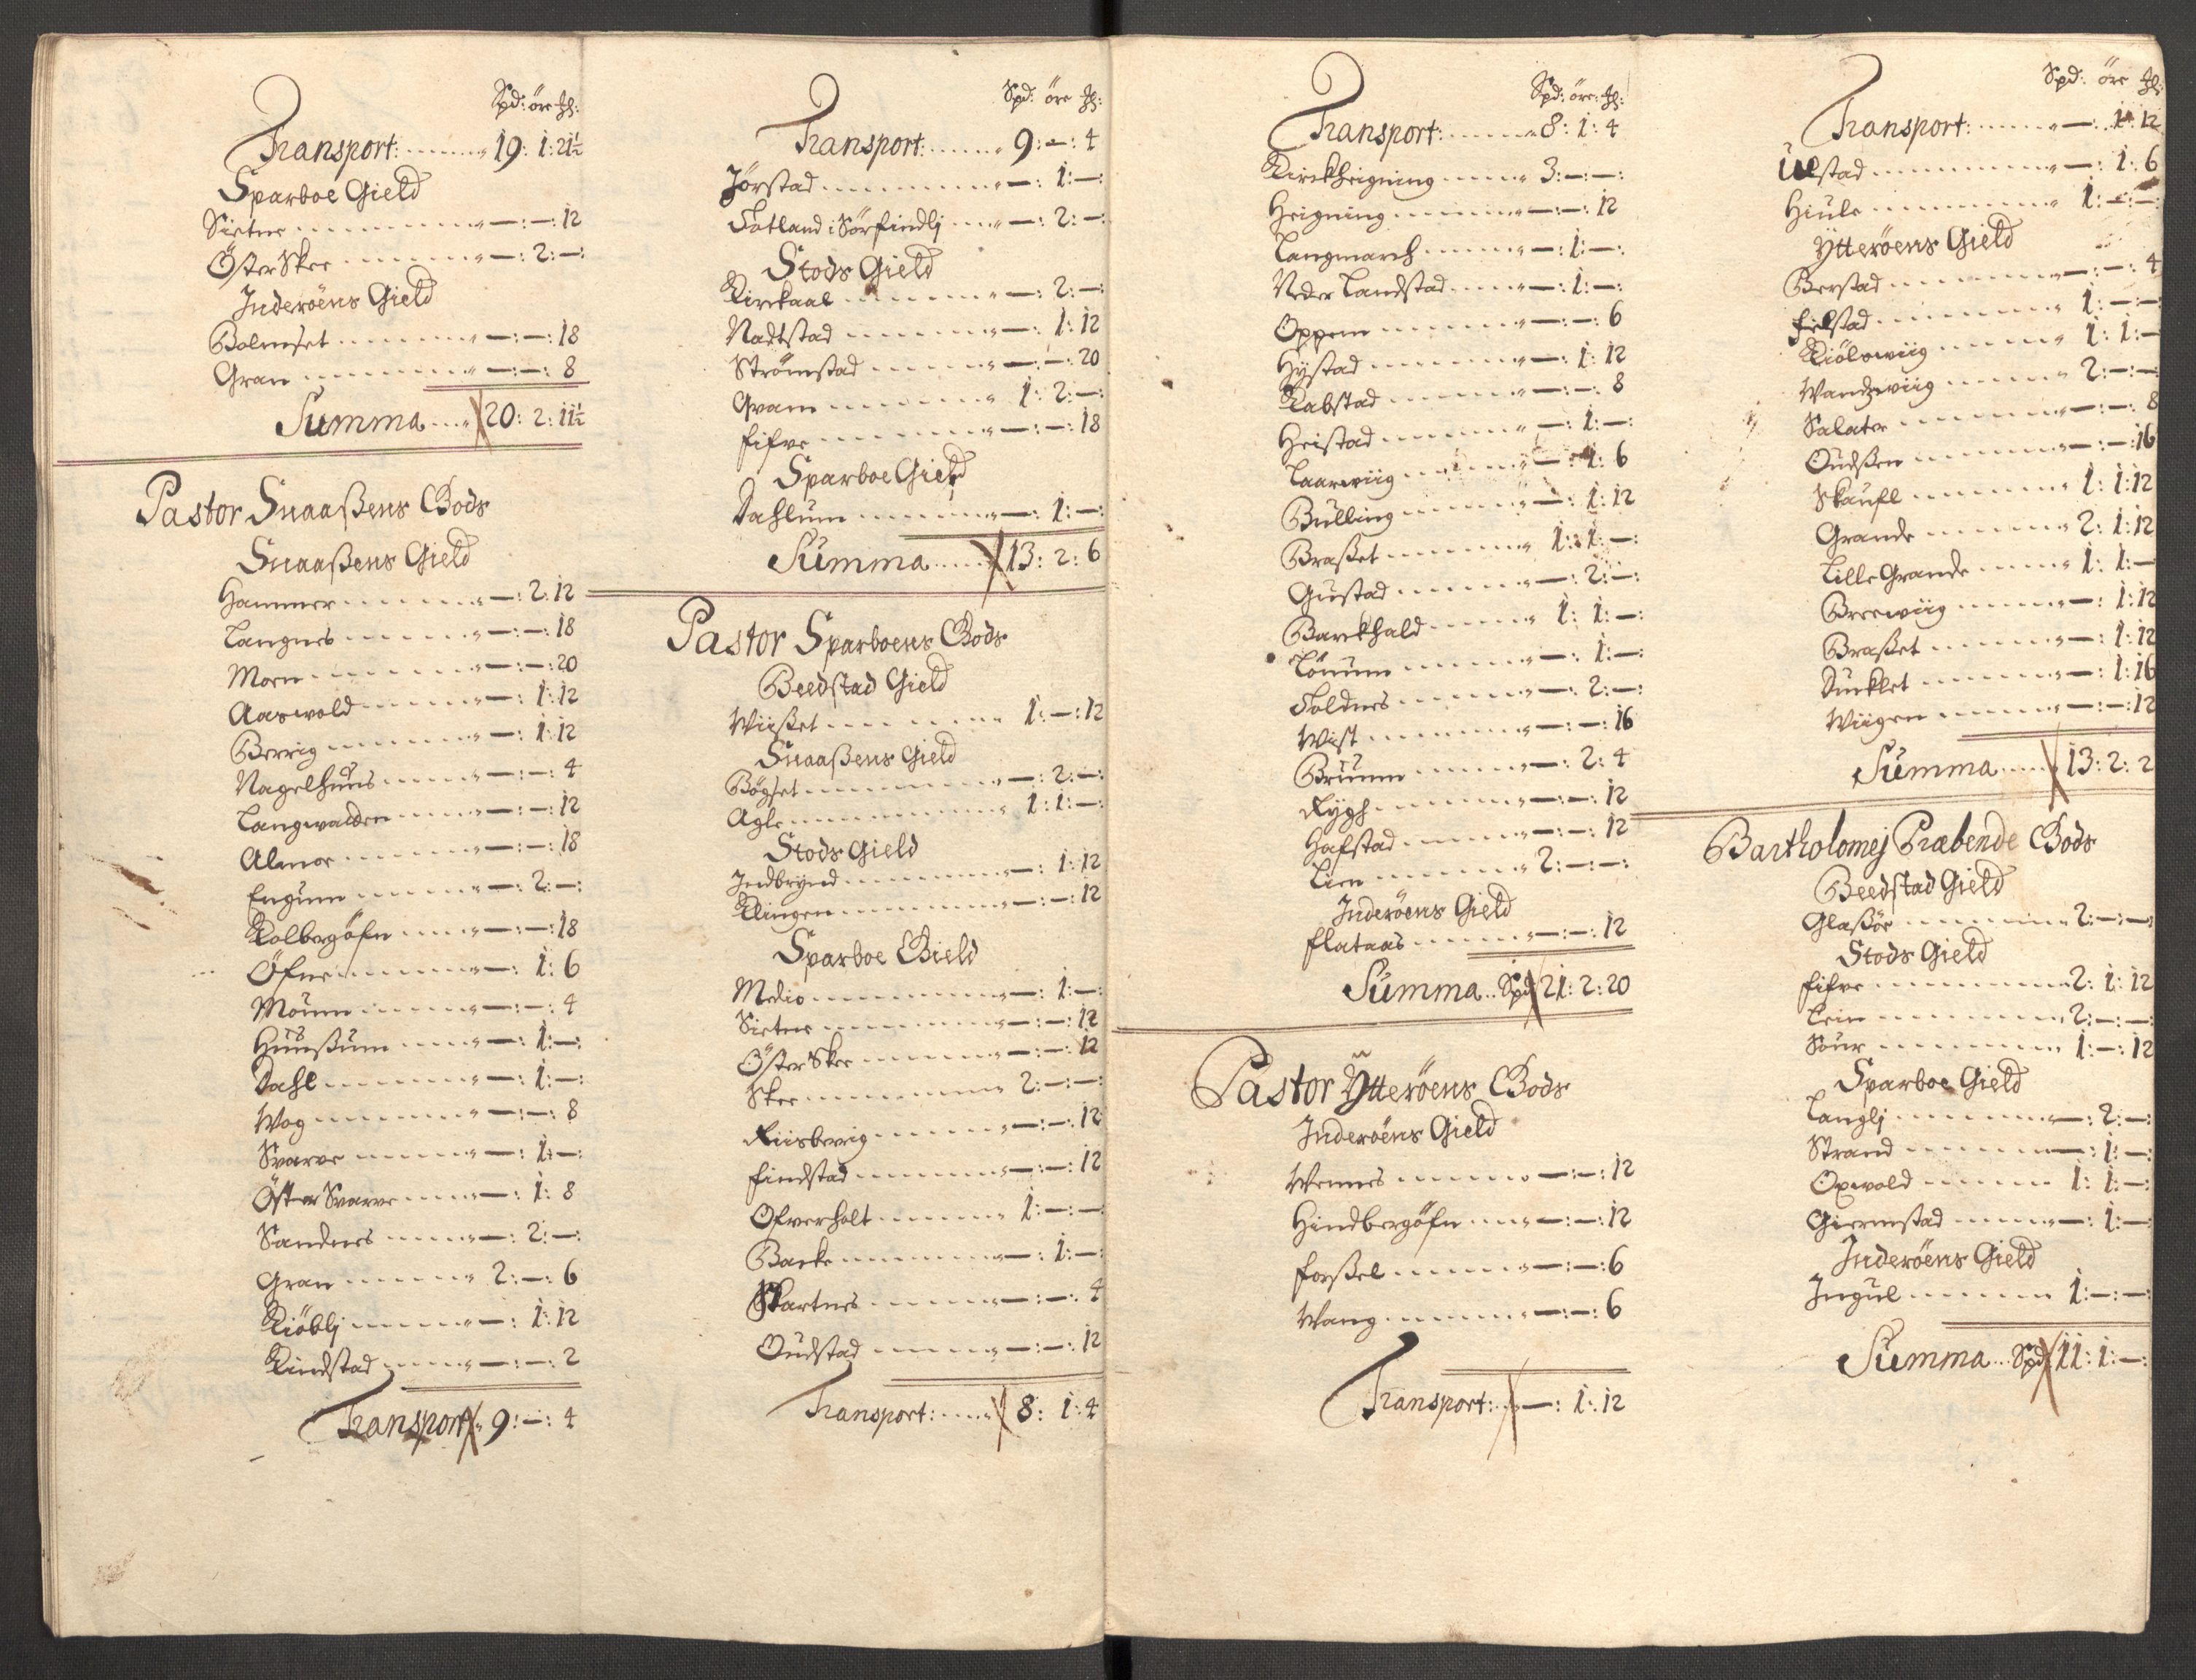 Spd: öre ₰:
Transport: 19: 1: 21½
Sparboe Gield
Sietne —:—: 12
Öster Skee —: 2: —:
Inderöens Gield
Bolmset —:—: 18
Gran —:—: 8
Summa 20: 2: 11½
Pastor Snaaßens Gods
Snaaßens Gield
Hammer —: 2: 12
Langnes —:—: 18
Moen —:—: 20
Aaswold —: 1: 12
Berrig —: 1: 12
Nagelhuus —:—: 4
Langwalden —:—: 12
Almoe —:—: 18
Engum —: 2: —:
Kolbergöfn —:—: 18
Öfne —: 1: 6
Moum —:—: 4
Huusßum —: 1: —:
Dahl —: 1: —:
Wog —:—: 8
Svarve —: 1: —:
Öster Svarve —: 1: 8
Sandnes —: 2: —:
Gran 2: —: 6
Kiöblj —: 1: 12
Kindstad —:—: 2
Transport 9: —: 4
Spd: öre ₰:
Transport: 9: —: 4
Jörstad —: 1: —:
Fotland i Sörfindlj —: 2: —:
Stods Gield
Kirckaal —: 2: —:
Nadtstad —: 1: 12
Strömstad —:—: 20
Qvam 1: 2: —:
Fifve —:—: 18
Sparboe Gield
Dahlum —: 1: —:
Summa 13: 2: 6
Pastor Sparboens Gods
Beedstad Gield
Wiißet 1: —: 12
Snaaßens Gield
Bögset —: 2: —:
Agle 1: 1: —:
Stods Gield
Indbrynd —: 1: 12
Klingen —:—: 12
Sparboe Gield
Medio —: 1: —:
Sietne —:—: 12
Öster Skee —:—: 12
Skee 2: —:—:
Riisberrig —:—: 12
Findstad —:—: 12
Ofverholt 1: —:—:
Backe —: 1: —:
Skartnes —:—: 4
Oudstad —:—: 12
Transport: 8: 1: 4
Spd: öre: ₰:
Transport: 8: 1: 4
Kirckheigning 3: —:—:
Heigning —:—: 12
Langmarch —: 1: —:
Neder Landstad —: 1: —:
Oppem —:—: 6
Hystad —: 1: 12
Kabstad —:—: 8
Heistad —: 1: —:
Laarwiig —: 1: 6
Bulling —: 1: 12
Braßet 1: 1: —:
Gustad —: 2: —:
Barckhald 1: 1: —:
Lönum —: 1: —:
Foldnes —: 2: —:
Wist —:—: 16
Bruum —: 2: 4
Rygh —:—: 12
Hafstad —:—: 12
Lien 2: —:—:
Inderöens Gield
Flataas —:—: 12
Summa Spd 21: 2: 20
Pastor Ytteröens Gods
Inderöens Gield
Wennes —:—: 12
Hindbergöfn —:—: 12
Forßel —:—: 6
Wang —:—: 6
Transport: —: 1: 12
Spd: öre ₰:
Transport: —: 1: 12
Uelstad —: 1: 6
Hiule 1: —:—:
Ytteröens Gield
Berstad —:—: 4
Fielstad 1: —:—:
Kiölswiig 1: 1: —
Wandswiig 2: —:—:
Salater —:—: 8
Oudßen —:—: 16
Skaufl 1: 1: 12
Grande 2: 1: 12
Lille Grande 1: 1: —
Breewiig —: 1: 12
Braßet —: 1: 12
Duncklet —: 1: 16
Wiigen —:—: 12
Summa 13: 2: 2
Bartholomej Præbende Gods
Beedstad Gield
Glaßöe 2: —:—:
Stods Gield
Fifve 2: 1: 12
Lein 2: —:—:
Sour 1: —: 12
Sparboe Gield
Langlj —: 2: —:
Strand —: 1: —:
Oxwold 1: 1: —:
Giermstad —: 1: —:
Inderöens Gield
Ingul 1: —:—:
Summa Spd 11: 1: —: